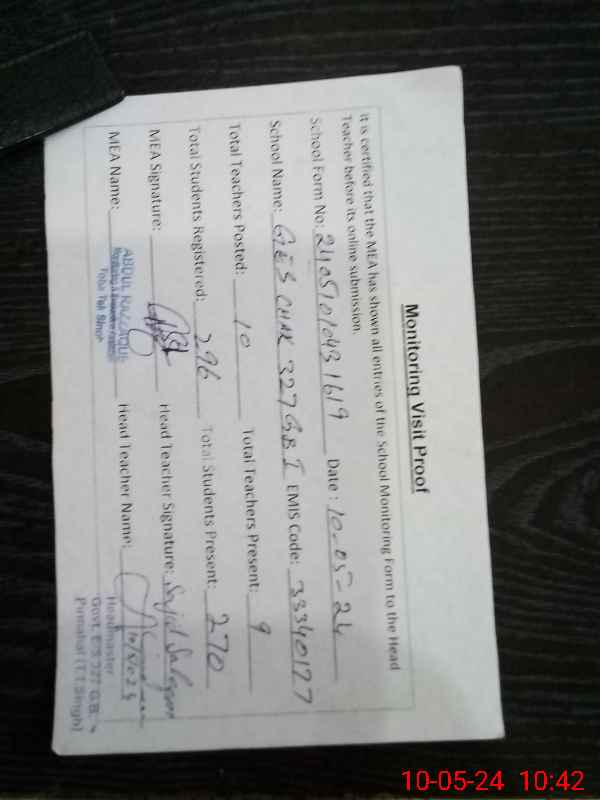 Monitoring Visit Proof
It is certified that the MEA has shown all entries of the School Monitoring Form to the Head
Teacher before its online submission.
School Form No: 24051010431619 Date: 10-05-24
School Name: GES CHAK 327 GB I EMIS Code: 33340127
Total Teachers Posted: 10 Total Teachers Present: 9
Total Students Registered: 296 Total Students Present: 270
MEA Signature: Head Teacher Signature: Sajid
MEA Name: ABDUL RAZZAQUE Head Teacher Name:
Monitoring & Evaluation Assistant
Toba Tek Singh
10/5/024
Headmaster
Govt. E/S 327 G.B.
(T.T.Singh)
10-05-24 10:42